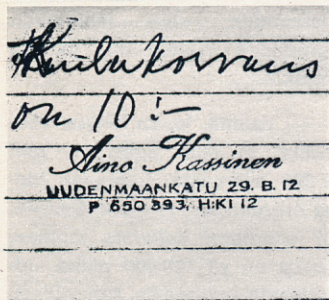 Kulukorvaus
on 10:-
Aino Kassinen
UUDENMAANKATU 29. B. 12
P 650 393, H:KI 12